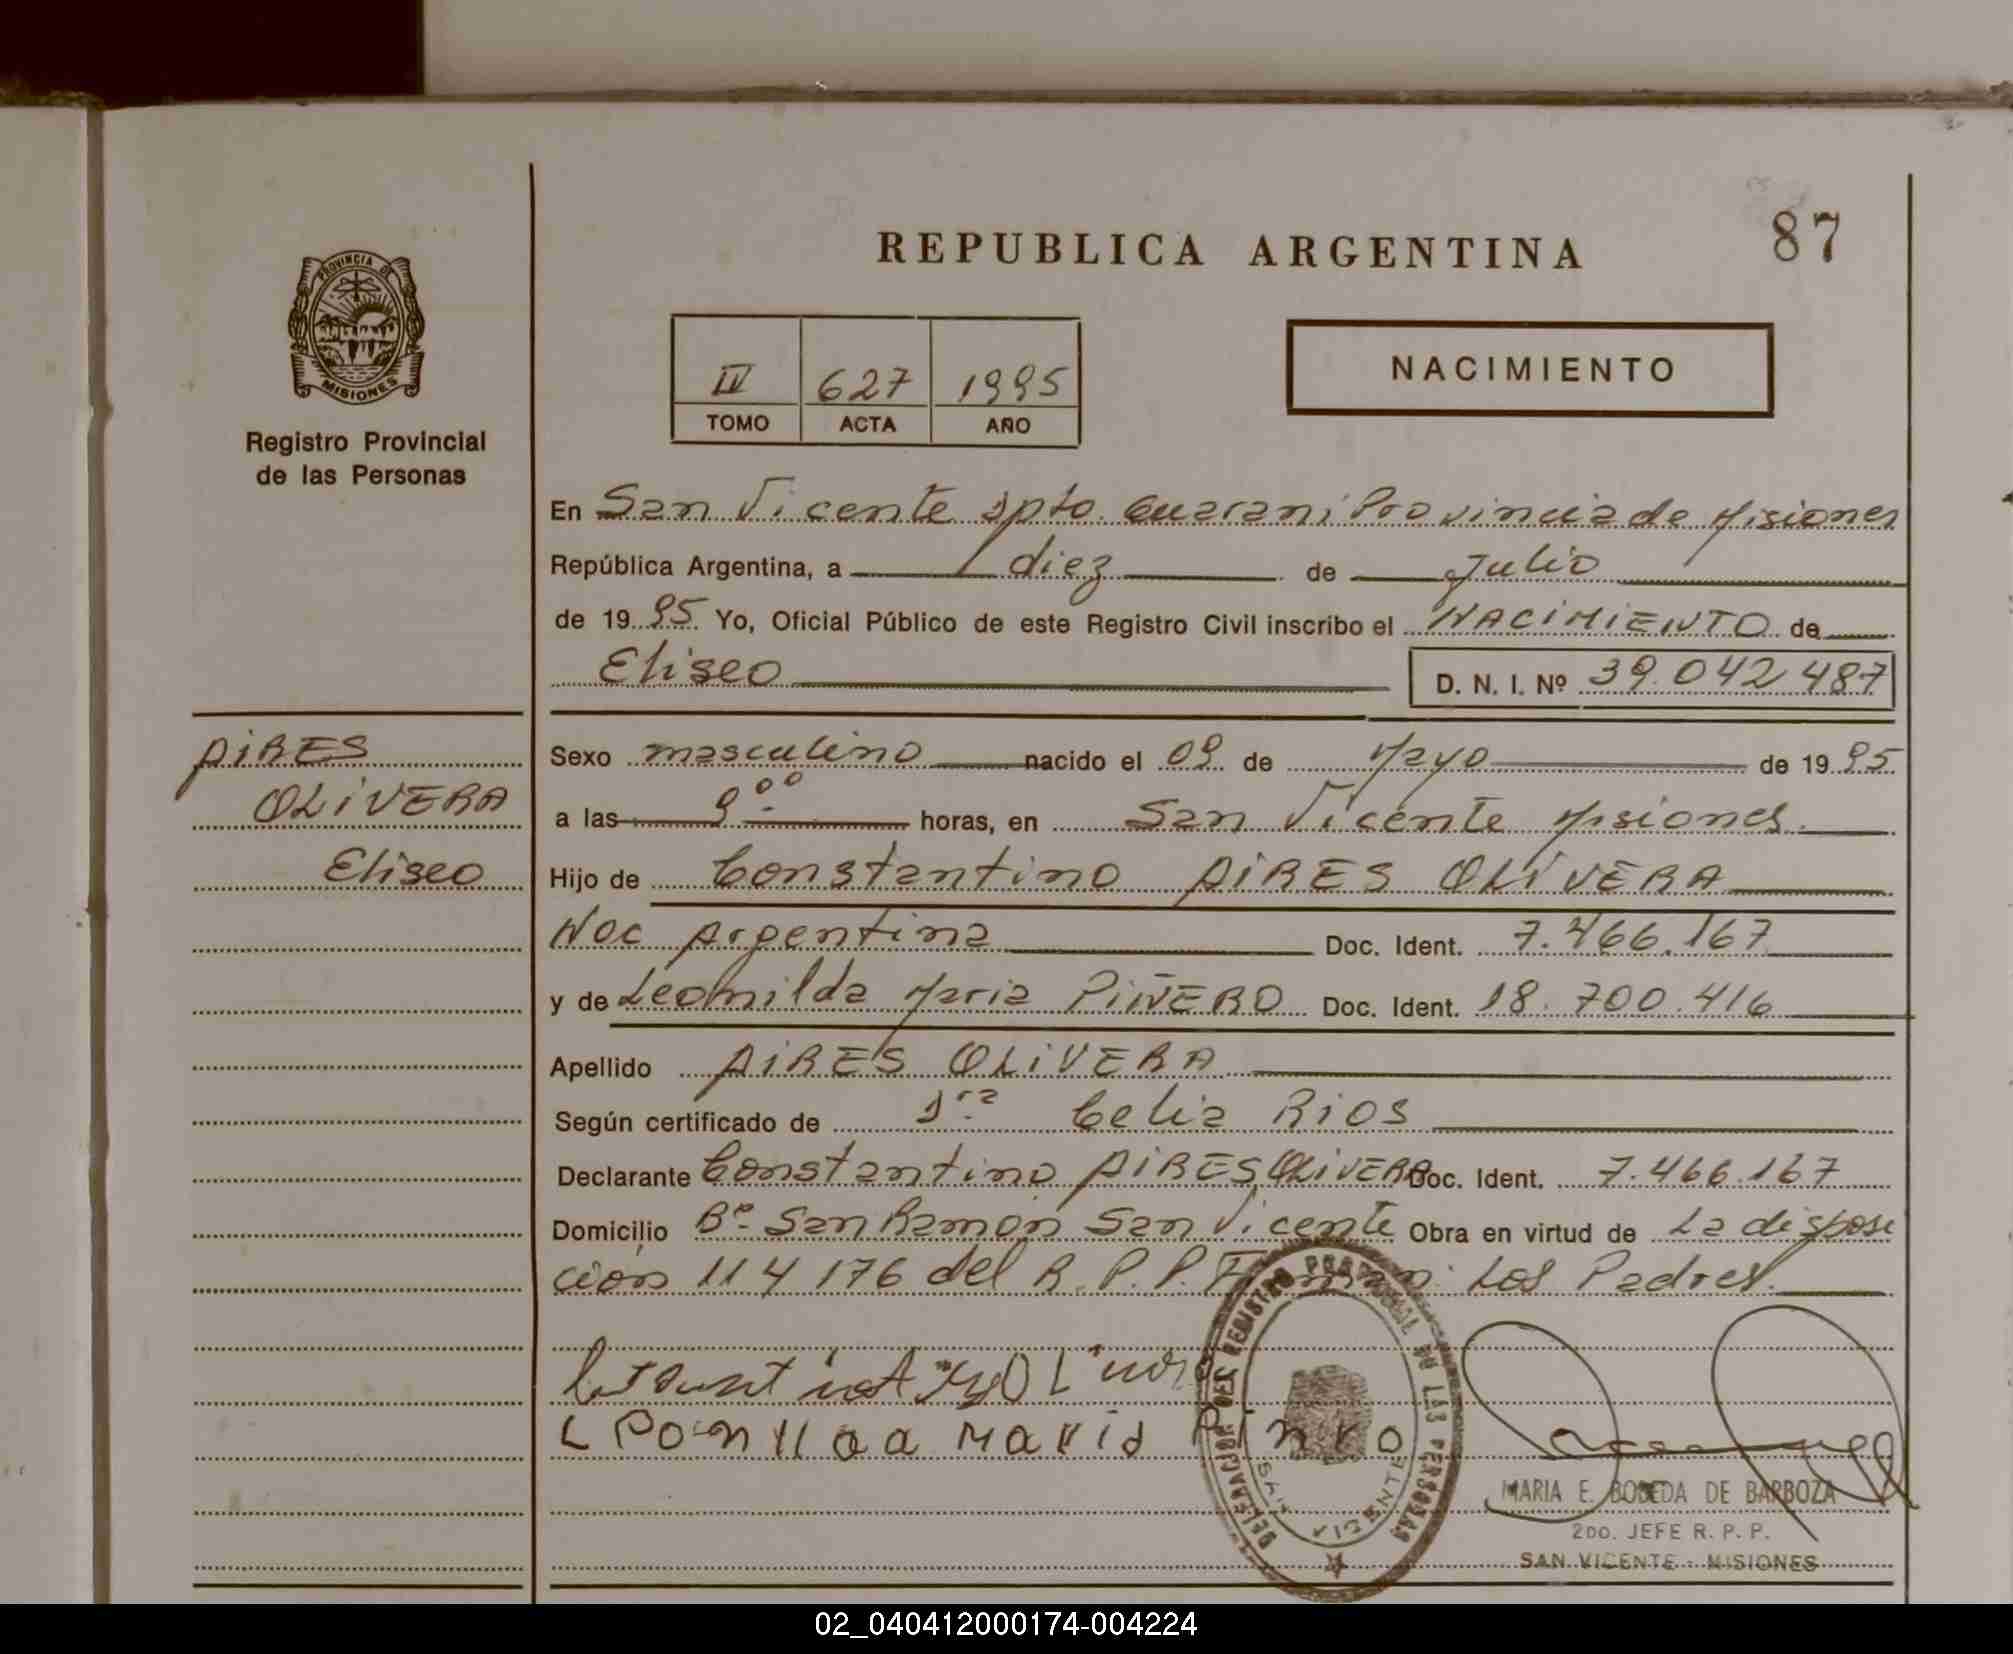 REPUBLICA ARGENTINA
87
PROVINCIA DE
MISIONES
Registro Provincial
de las Personas
IV 627 1995
TOMO ACTA AÑO
NACIMIENTO
En San Vicente dpto. Guarani Provincia de Misiones
República Argentina, a diez de Julio
de 19 95 Yo, Oficial Público de este Registro Civil inscribo el NACIMIENTO de
Eliseo D. N. I. Nº 39.042 487
PIRES
OLIVERA
Eliseo
Sexo masculino nacido el 09 de Mayo de 19 95
a las 9 00 horas, en San Vicente Misiones.
Hijo de Constantino PIRES OLIVERA
Nac Argentina Doc. Ident. 7.466.167
y de Leonilda Maria PIÑERO Doc. Ident. 18.700.416
Apellido PIRES OLIVERA
Según certificado de Celia RIOS
Declarante Constantino PIRES OLIVERA Doc. Ident. 7.466.167
Domicilio Bº San Ramon San Vicente Obra en virtud de La disposi
cion 114 176 del R. P. P. Firman: Los Padres.
Maria
REGISTRO PROVINCIAL DE LAS PERSONAS
SAN VICENTE
MARIA E. BOBEDA DE BARBOZA
2DO. JEFE R. P. P.
SAN VICENTE - MISIONES
02_040412000174-004224